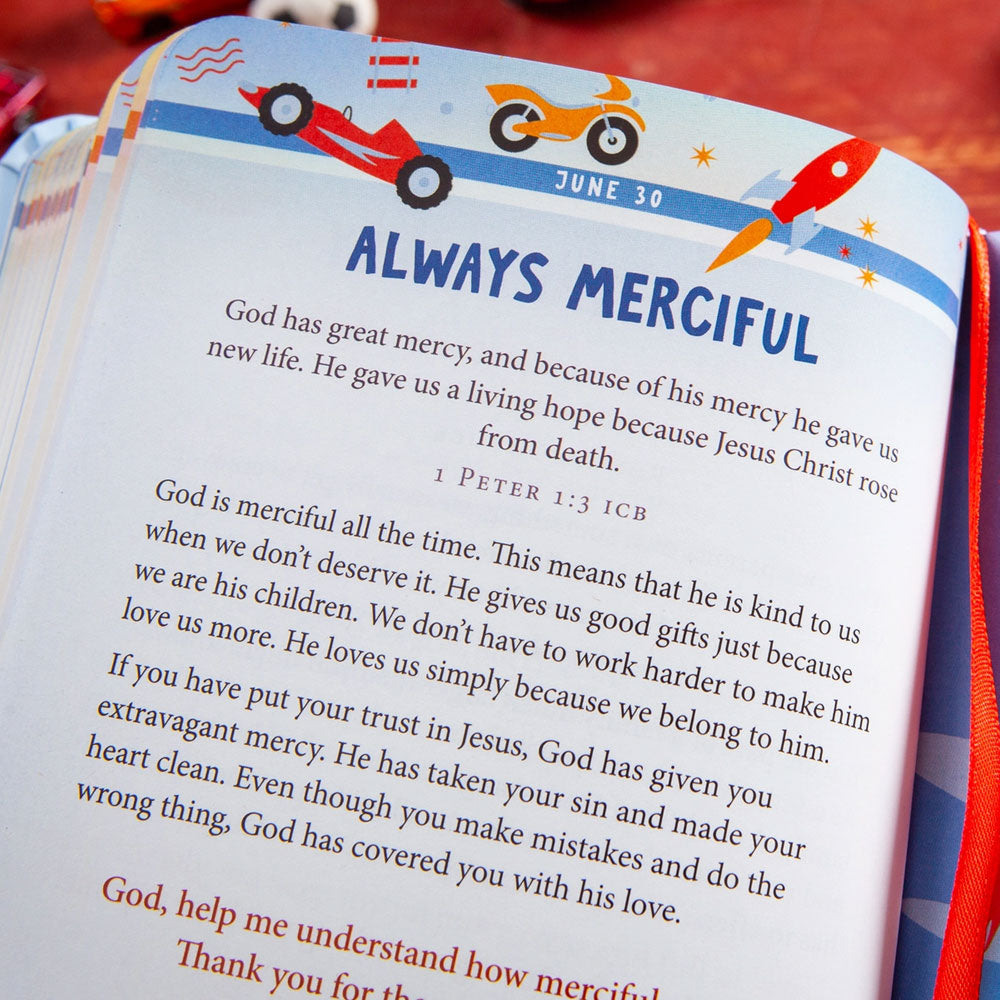 JUNE 30
ALWAYS MERCIFUL
God has great mercy, and because of his mercy he gave us
new life. He gave us a living hope because Jesus Christ rose
from death.
1 PETER 1:3 ICB
God is merciful all the time. This means that he is kind to us
when we don't deserve it. He gives us good gifts just because
we are his children. We don't have to work harder to make him
love us more. He loves us simply because we belong to him.
If you have put your trust in Jesus, God has given you
extravagant mercy. He has taken your sin and made your
heart clean. Even though you make mistakes and do the
wrong thing, God has covered you with his love.
God, help me understand how merciful
Thank you for